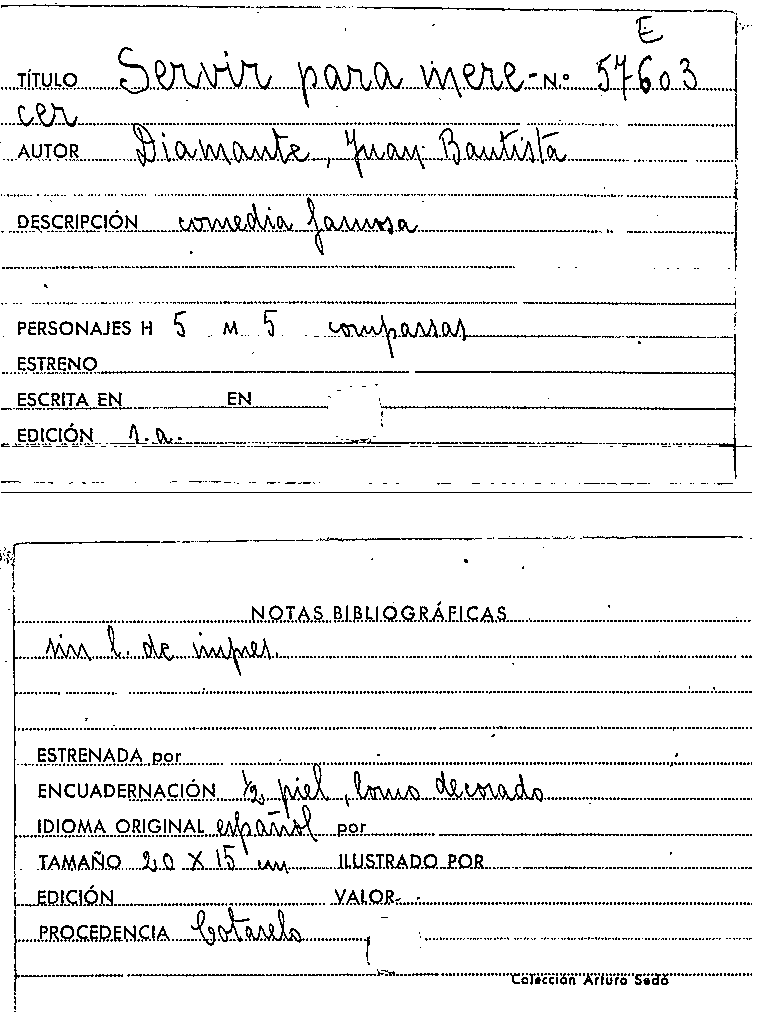 E
TÍTULO Servir para mere- N.º 57603
cer
AUTOR Diamante, Juan Bautista
DESCRIPCIÓN comedia famosa
PERSONAJES H 5 M 5 comparsas
ESTRENO
ESCRITA EN EN
EDICIÓN s.a.
NOTAS BIBLIOGRÁFICAS
sin l. de impres.
ESTRENADA por
ENCUADERNACIÓN ½ piel, lomo decorado
IDIOMA ORIGINAL español por
TAMAÑO 20 X 15 cm ILUSTRADO POR
EDICIÓN VALOR
PROCEDENCIA Cotarelo
Colección Arturo Sedó